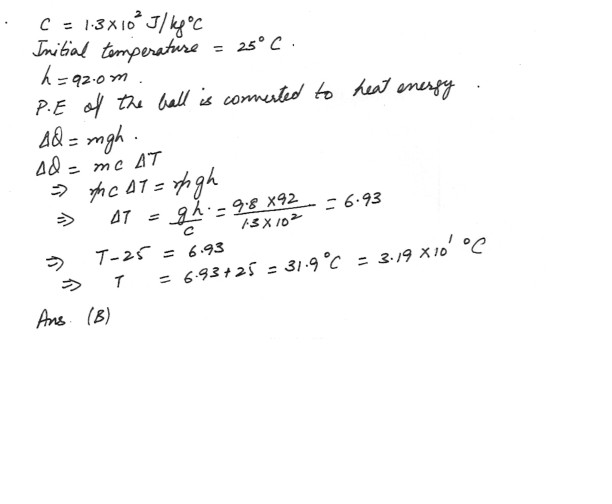 C = 1.3×10² J/kg°C
Initial temperature = 25° C.
h = 92.0 m.
P.E of the ball is converted to heat energy.
ΔQ = mgh.
ΔQ = mc ΔT
⇒ mc ΔT = mgh
⇒ ΔT = gh/c = 9.8 ×92/1.3×10² = 6.93
⇒ T-25 = 6.93
⇒ T = 6.93+25 = 31.9°C = 3.19 ×10¹ °C
Ans. (B)